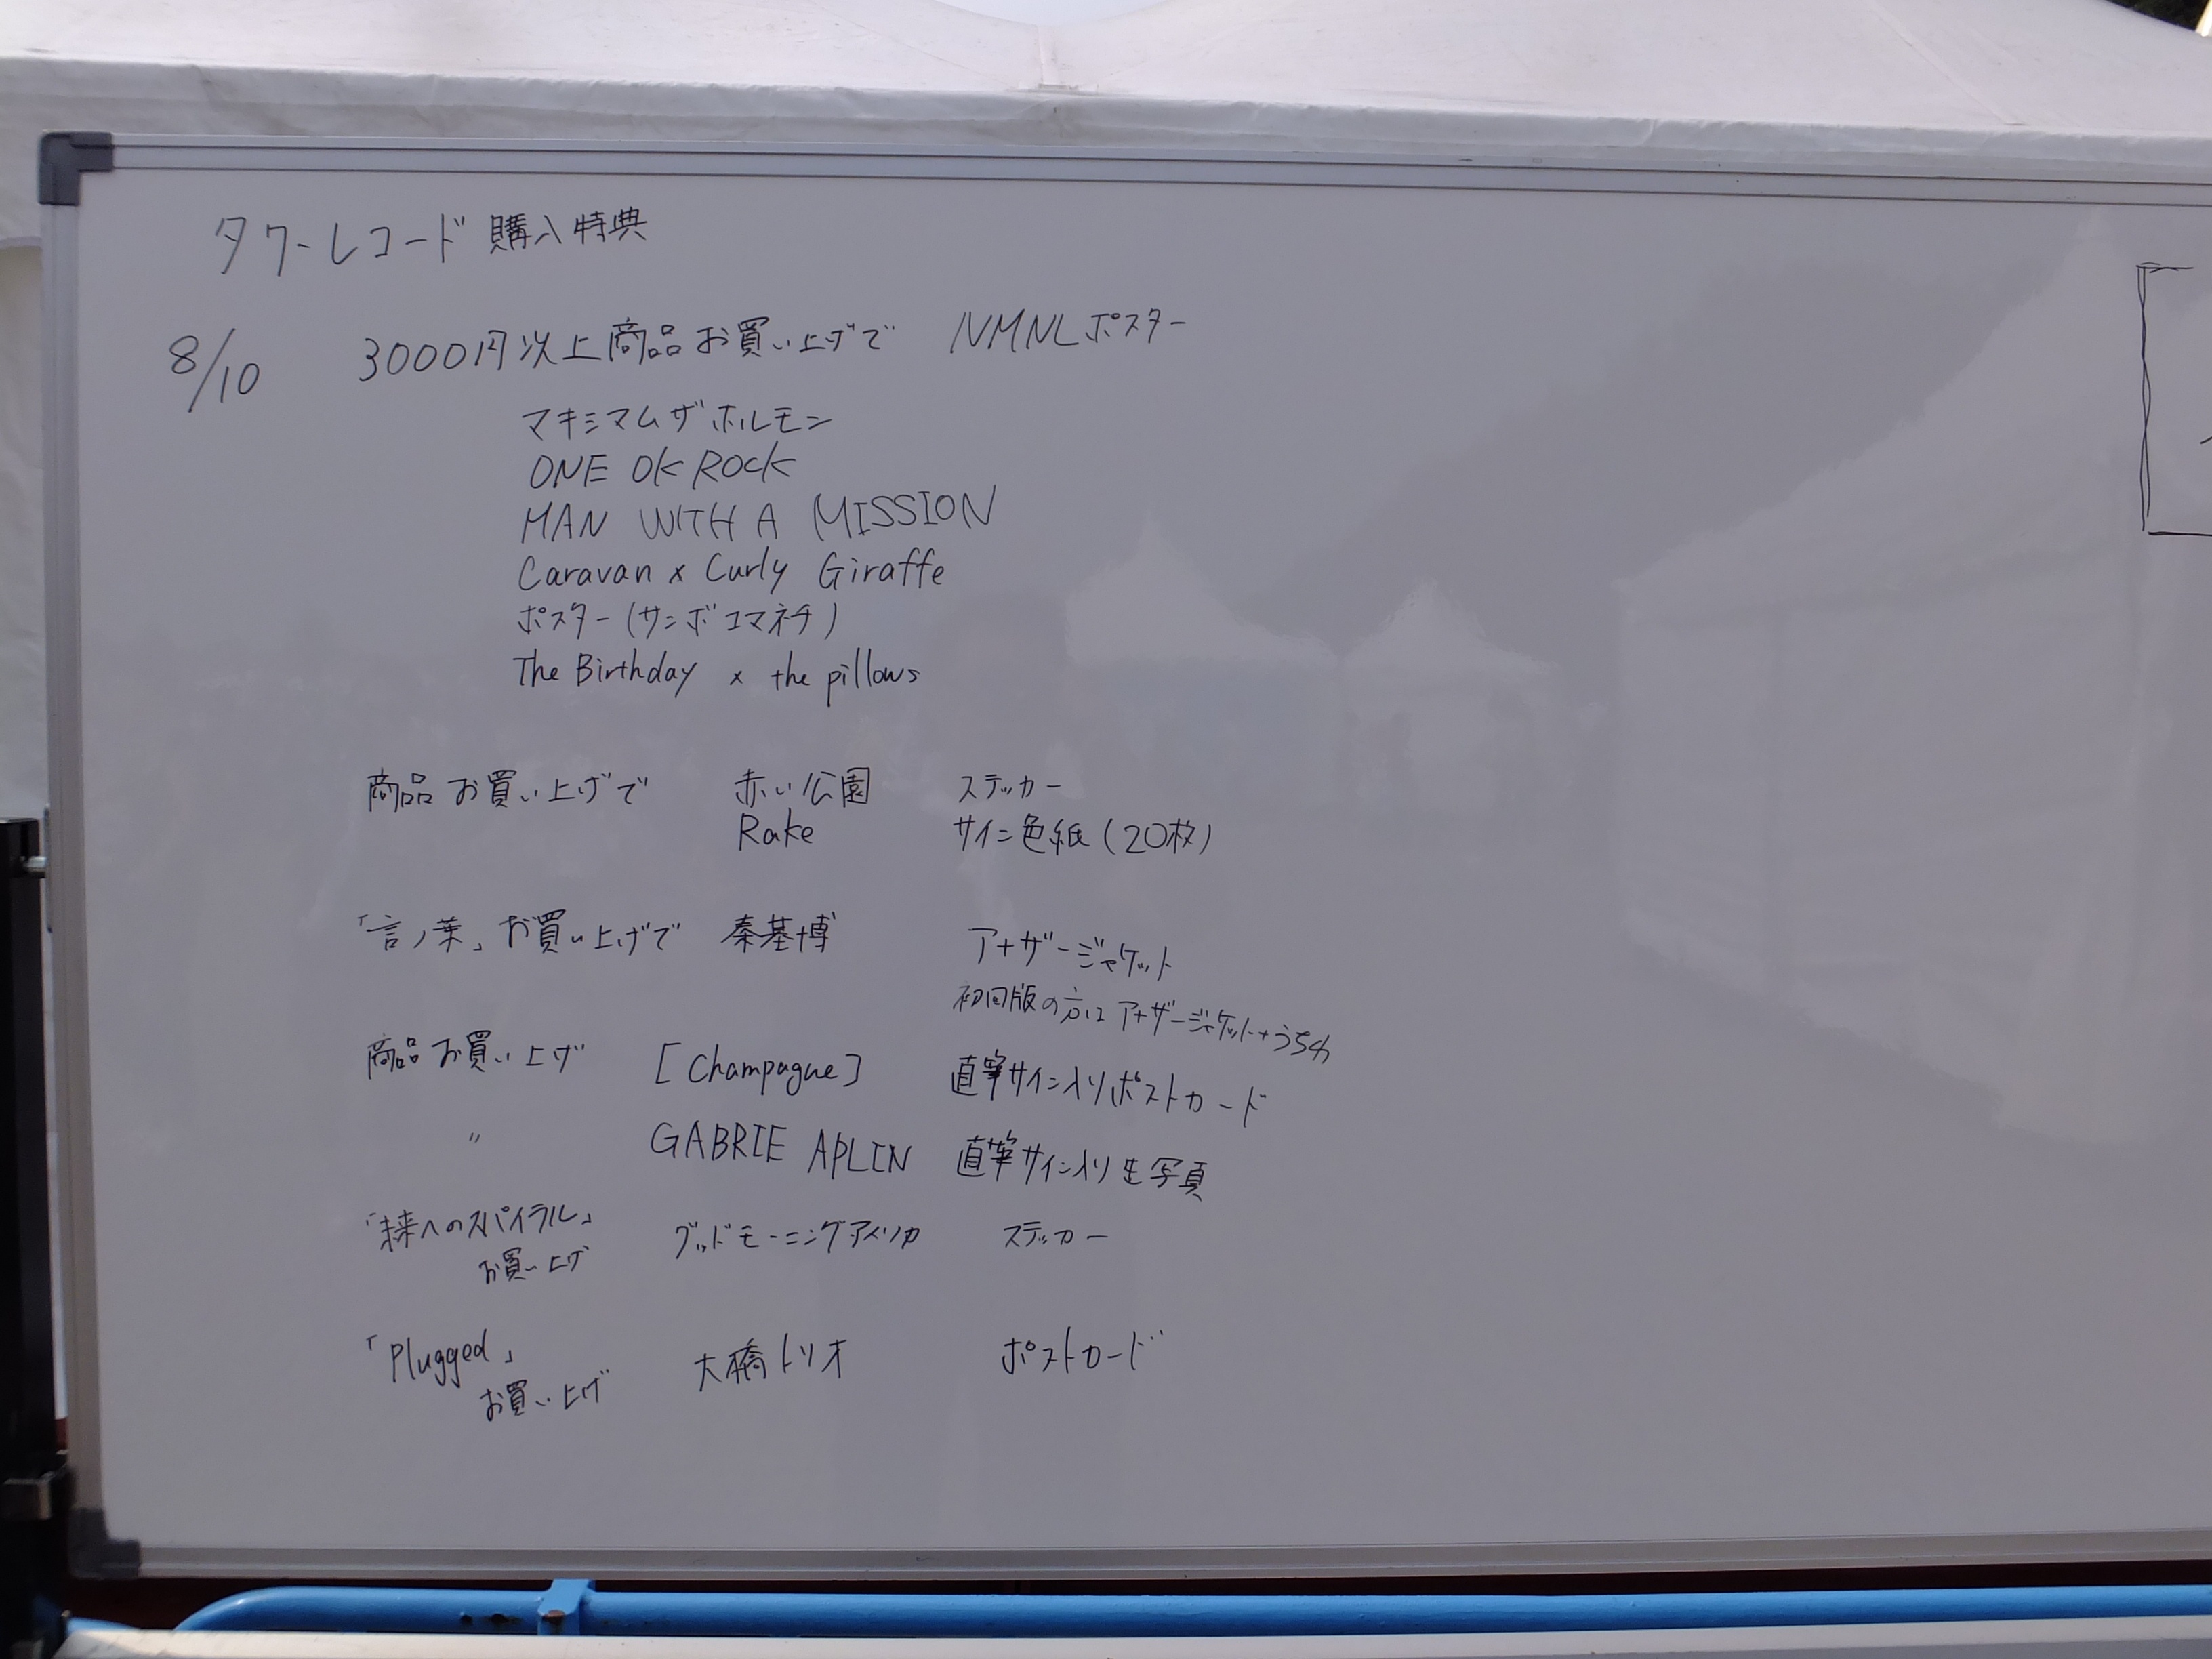 タワーレコード 購入特典
8/10 3000円以上商品お買い上げで NMNLポスター
マキシマムザホルモン
ONE OK ROCK
MAN WITH A MISSION
Caravan x Curly Giraffe
ポスター(サンボコマネチ)
The Birthday x the pillows
商品お買い上げで 赤い公園 ステッカー
Rake サイン色紙(20枚)
「言ノ葉」お買い上げで 秦基博 アナザージャケット
初回版の方は アナザージャケット+うちわ
商品お買い上げ [Champagne] 直筆サイン入りポストカード
〃 GABRIE APLIN 直筆サイン入り生写真
「未来へのスパイラル」 グッドモーニングアメリカ ステッカー
お買い上げ
「Plugged」 大橋トリオ ポストカード
お買い上げ